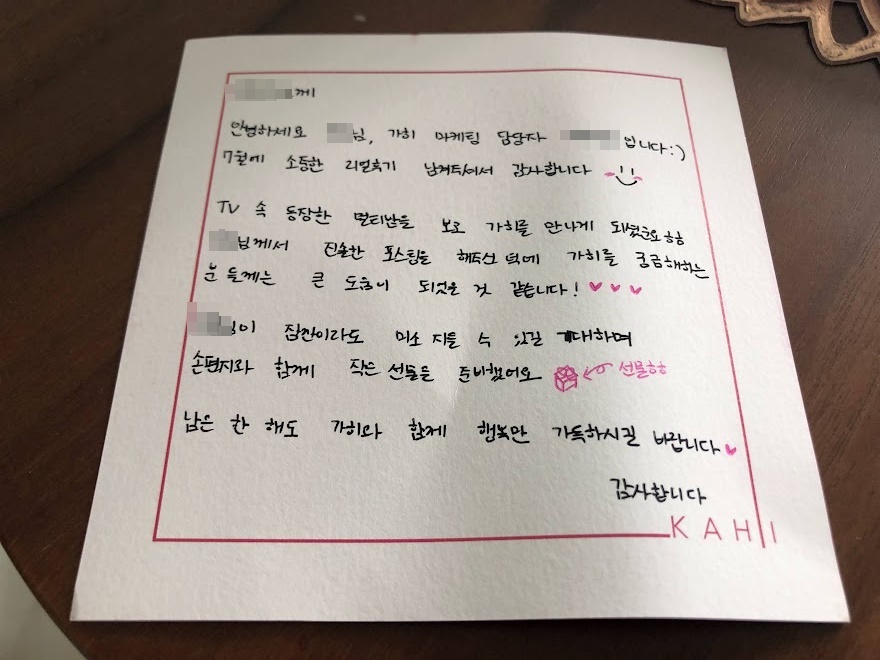 께
안녕하세요 님, 가히 마케팅 담당자 입니다:)
7월에 소중한 리얼후기 남겨주셔서 감사합니다
TV 속 등장한 멀티밤을 보고 가히를 만나게 되셨군요ㅎㅎ
님께서 진솔한 포스팅을 해주신 덕에 가히를 궁금해하는
분들께는 큰 도움이 되었을 것 같습니다!
님이 잠깐이라도 미소 지을 수 있길 기대하며
손편지와 함께 작은 선물을 준비했어요 선물ㅎㅎ
남은 한 해도 가히와 함께 행복만 가득하시길 바랍니다
감사합니다
KAHI